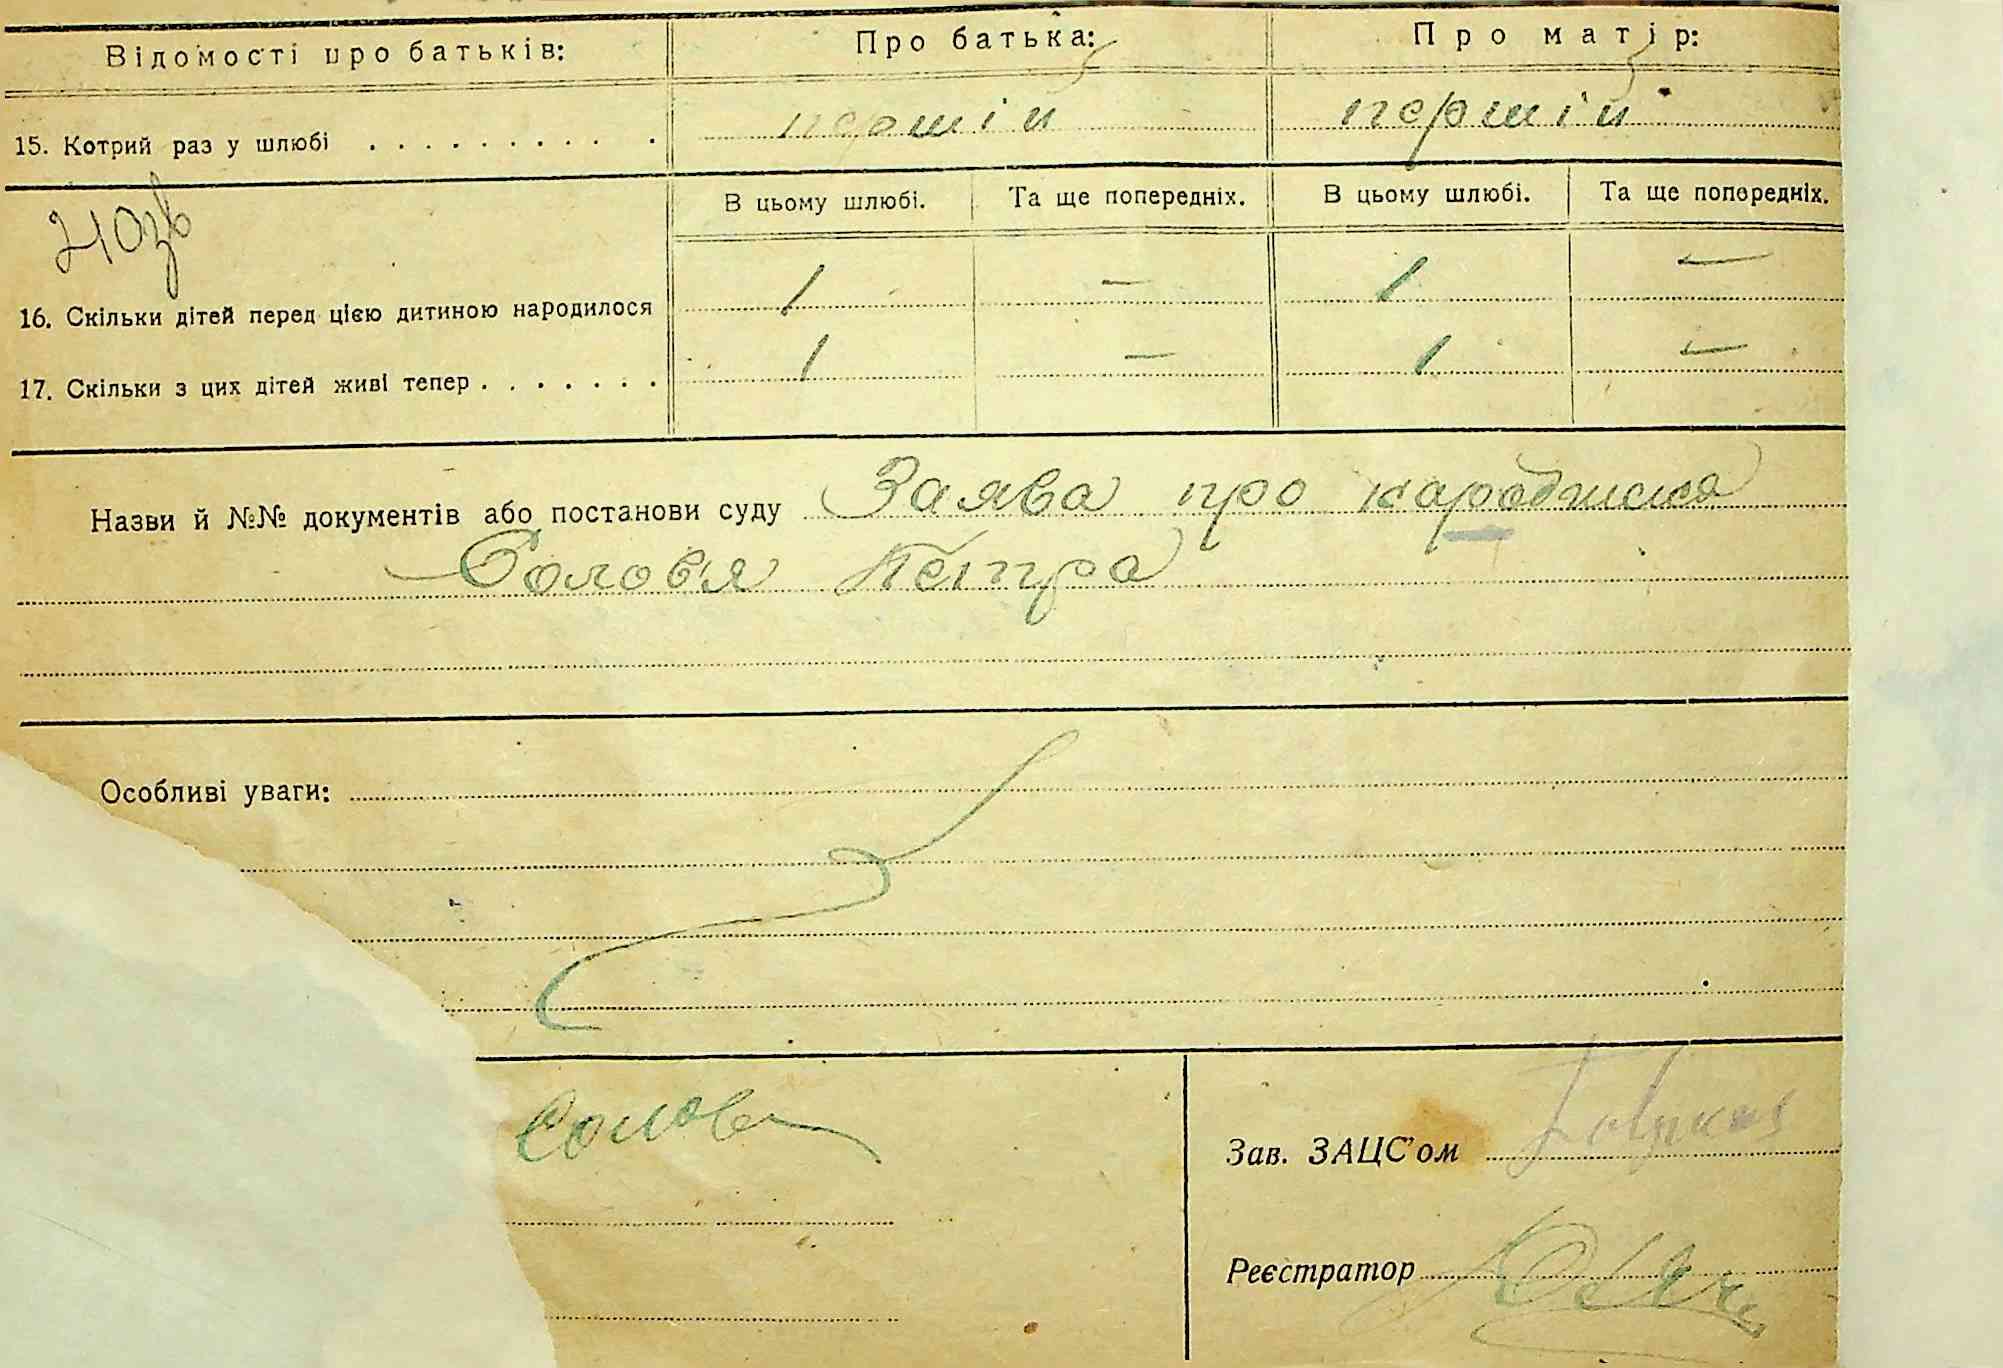 Відомості про батьків: Про батька: Про матір:
15. Котрий раз у шлюбі . . . . . . . . . . . першій першій
В цьому шлюбі. Та ще попередніх. В цьому шлюбі. Та ще попередніх.
16. Скільки дітей перед цією дитиною народилося 1 — 1 —
17. Скільки з цих дітей живі тепер . . . . . . . 1 — 1 —
Назви й №№ документів або постанови суду Заява про
Соловя Петра
Особливі уваги:
Зав. ЗАЦС'ом
Реєстратор